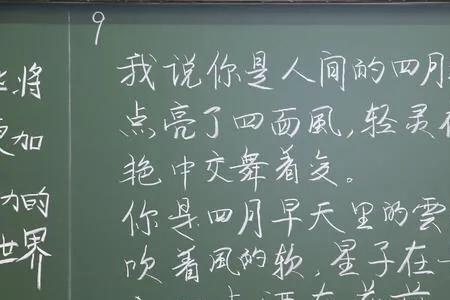 将
更加
的
世界
9
我说你是人间的四月
点亮了四面風,轻灵在
艳中交舞着变。
你是四月早天里的雲
吹着風的软,星子在